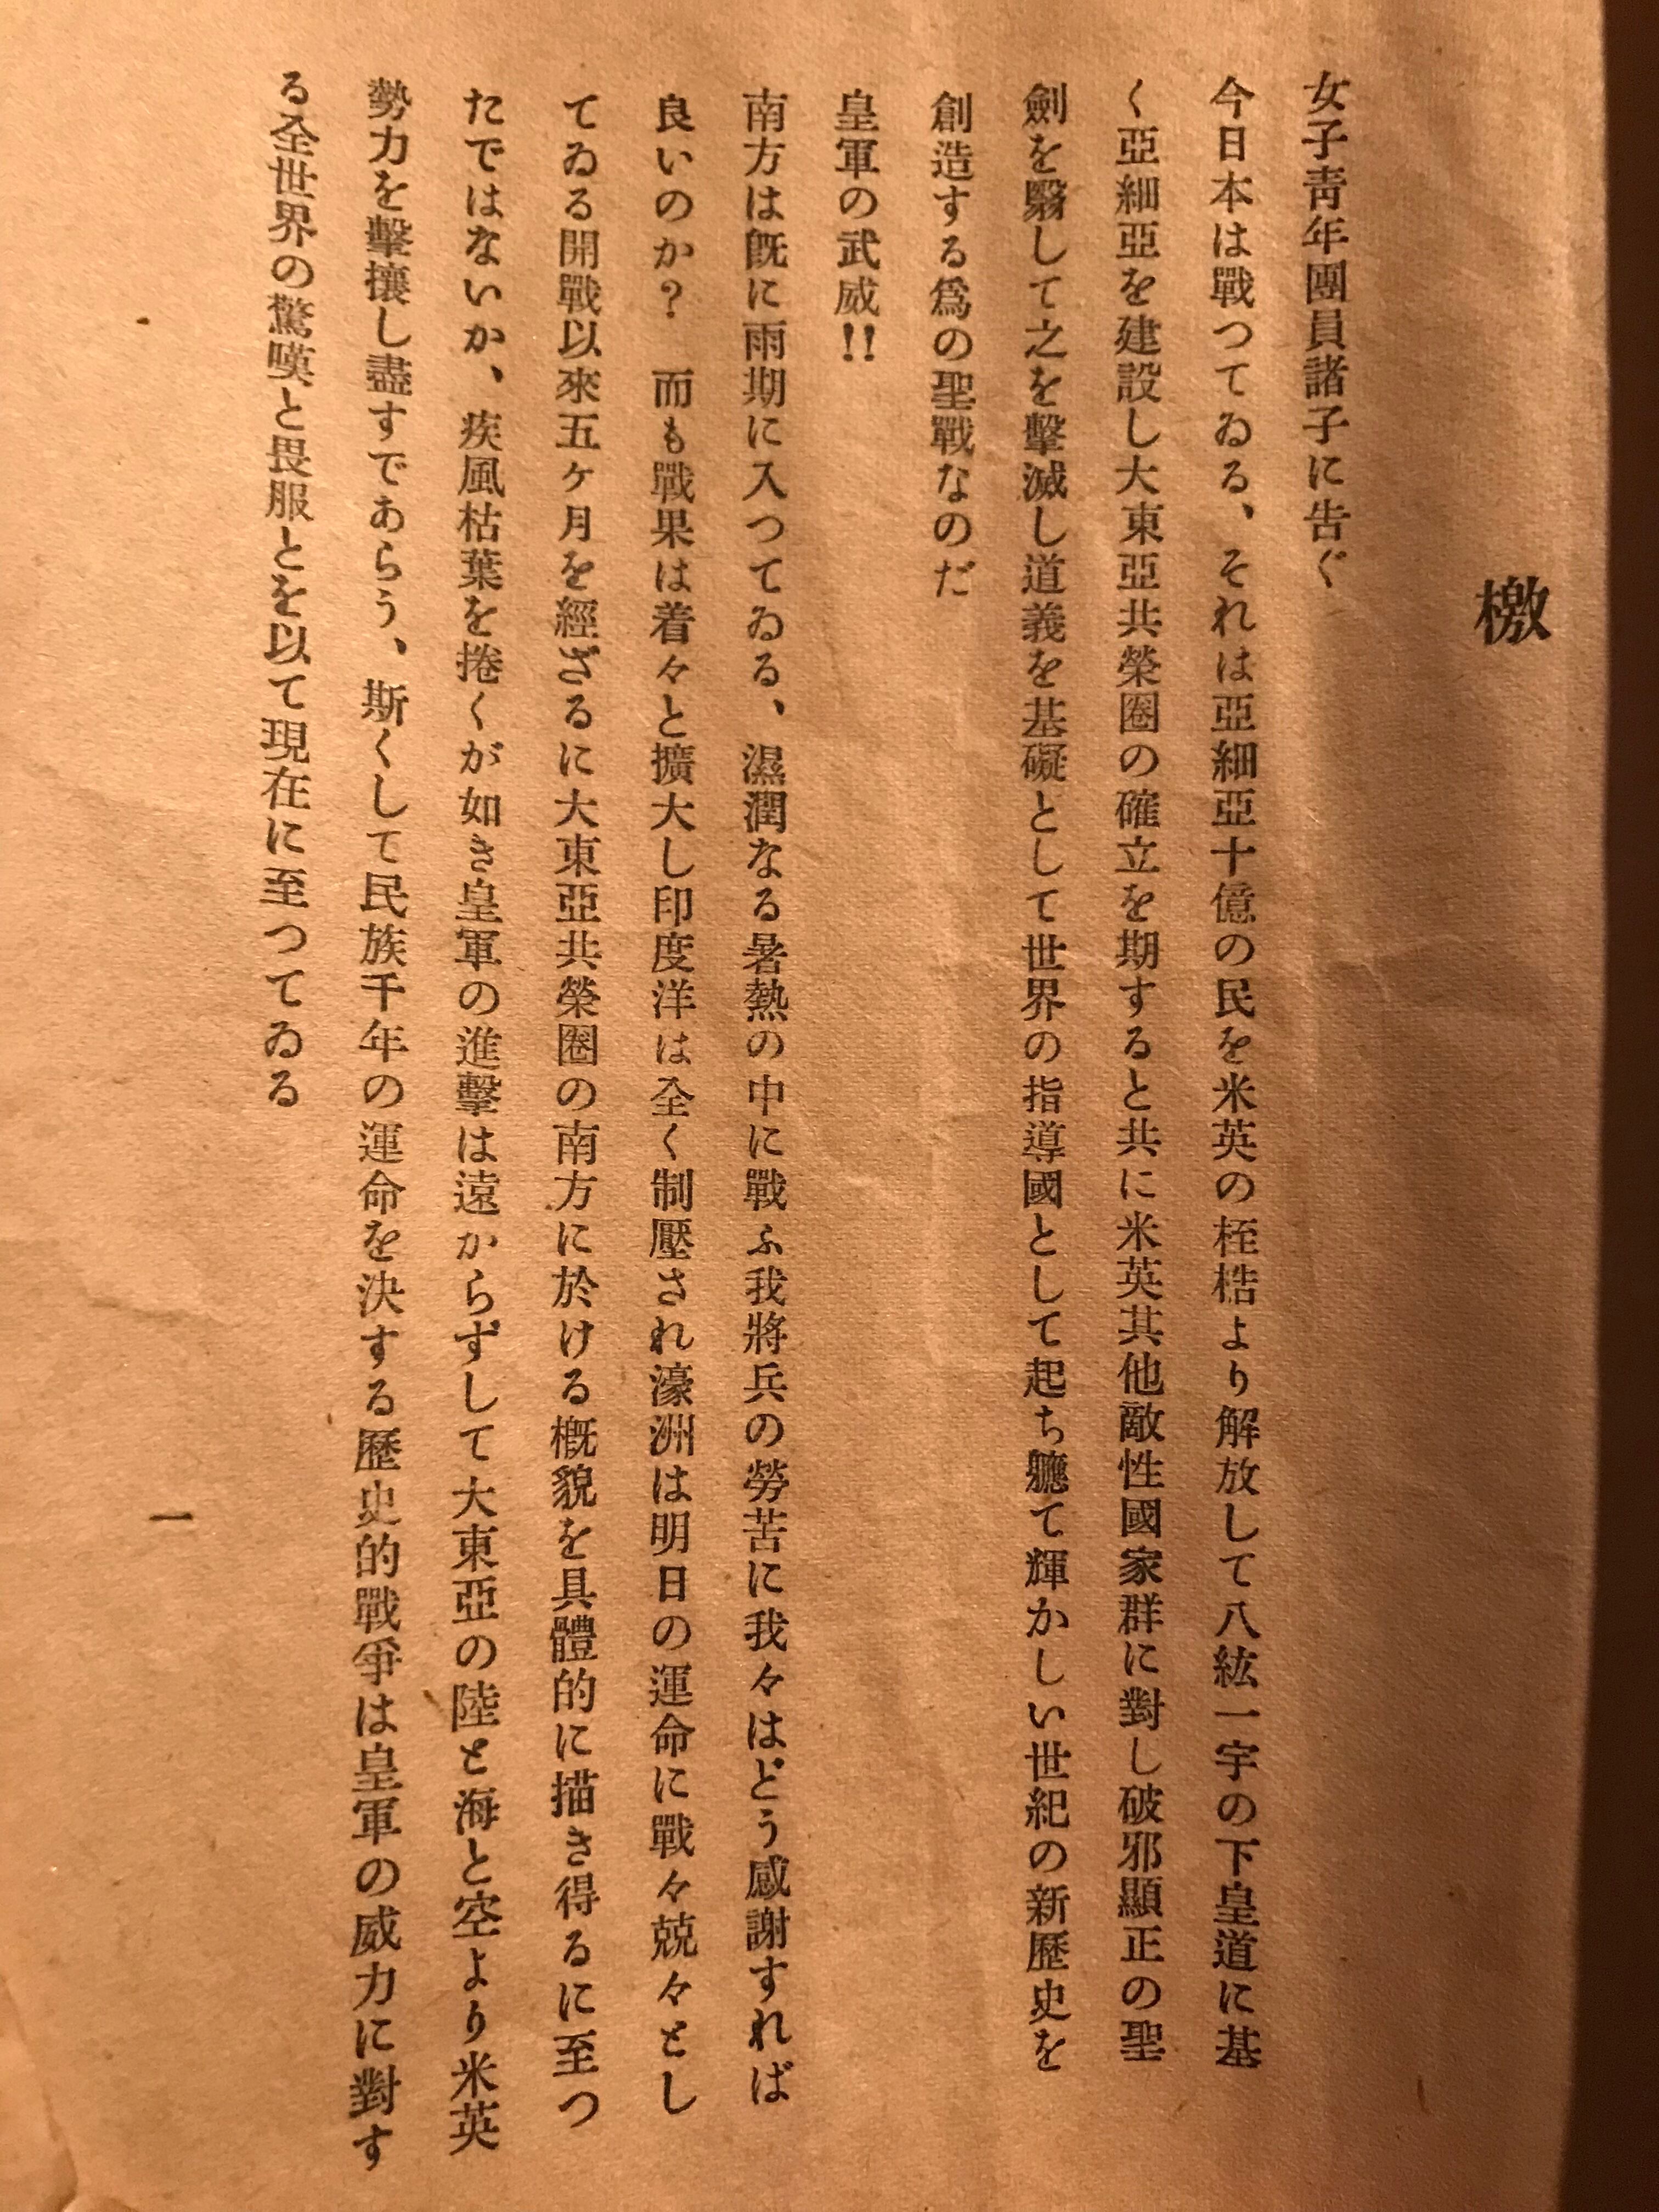 檄
女子靑年團員諸子に告ぐ
今日本は戰つてゐる、それは亞細亞十億の民を米英の桎梏より解放して八紘一宇の下皇道に基
く亞細亞を建設し大東亞共榮圏の確立を期すると共に米英其他敵性國家群に對し破邪顯正の聖
劍を翳して之を擊滅し道義を基礎として世界の指導國として起ち軈て輝かしい世紀の新歷史を
創造する爲の聖戰なのだ
皇軍の武威!!
南方は旣に雨期に入つてゐる、濕潤なる暑熱の中に戰ふ我將兵の勞苦に我々はどう感謝すれば
良いのか? 而も戰果は着々と擴大し印度洋は全く制壓され濠洲は明日の運命に戰々兢々とし
てゐる開戰以來五ケ月を經ざるに大東亞共榮圏の南方に於ける槪貌を具體的に描き得るに至つ
たではないか、疾風枯葉を捲くが如き皇軍の進擊は遠からずして大東亞の陸と海と空より米英
勢力を擊攘し盡すであらう、斯くして民族千年の運命を決する歷史的戰爭は皇軍の威力に對す
る全世界の驚嘆と畏服とを以て現在に至つてゐる
一